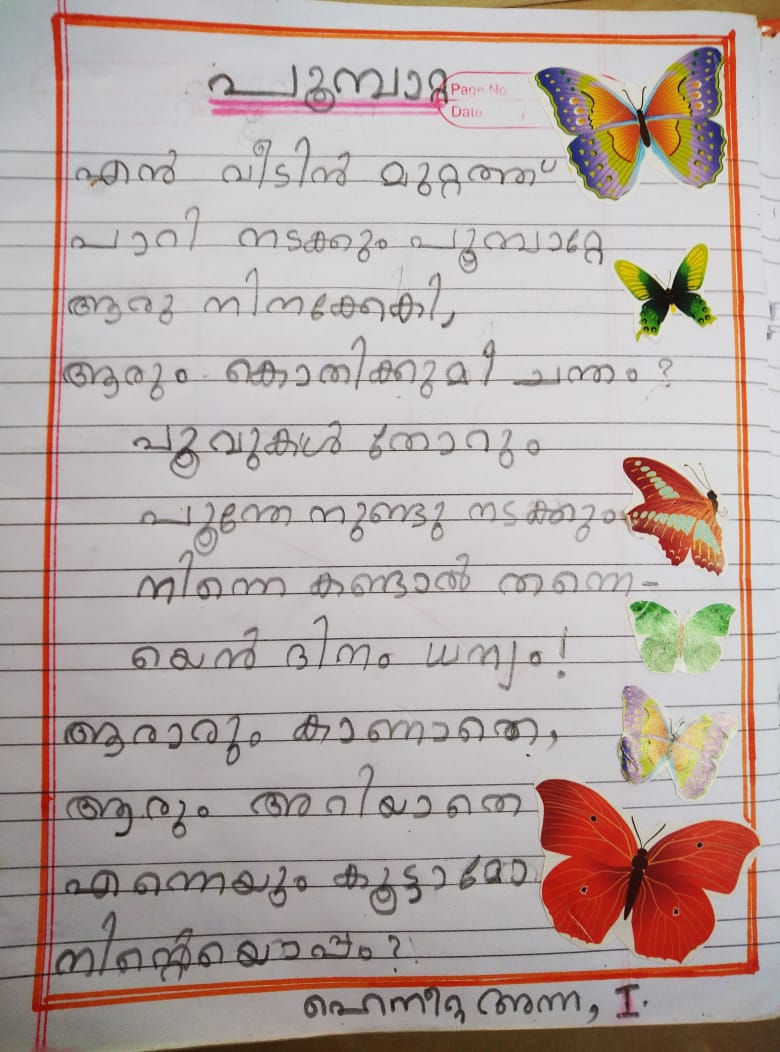 പൂമ്പാറ്റ
Page No
Date
എൻ വീടിൻ മുറ്റത്ത്
പാറി നടക്കും പൂമ്പാറ്റേ
ആരു നിനക്കേകി,
ആരും കൊതിക്കുമീ ചന്തം?
പൂവുകൾ തോറും
പൂന്തേ നുണ്ടു നടക്കും
നിന്നെ കണ്ടാൽ തന്നെ-
യെൻ ദിനം ധന്യം!
ആരാരും കാണാതെ,
ആരും അറിയാതെ
എന്നെയും കൂട്ടാമോ
നിന്റെയൊപ്പം?
ഹെന്നീറ്റ അന്ന, I.